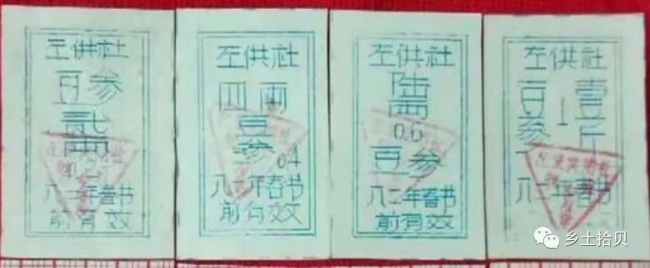 左供社
豆参
貳
两
八二年春节
前有效
左供社
四两
豆
参 0.4
八二年春节
前有效
左供社
陆
两
0.6
豆参
八二年春节
前有效
左供社
豆参
1
壹斤
八二年春节
乡土拾贝